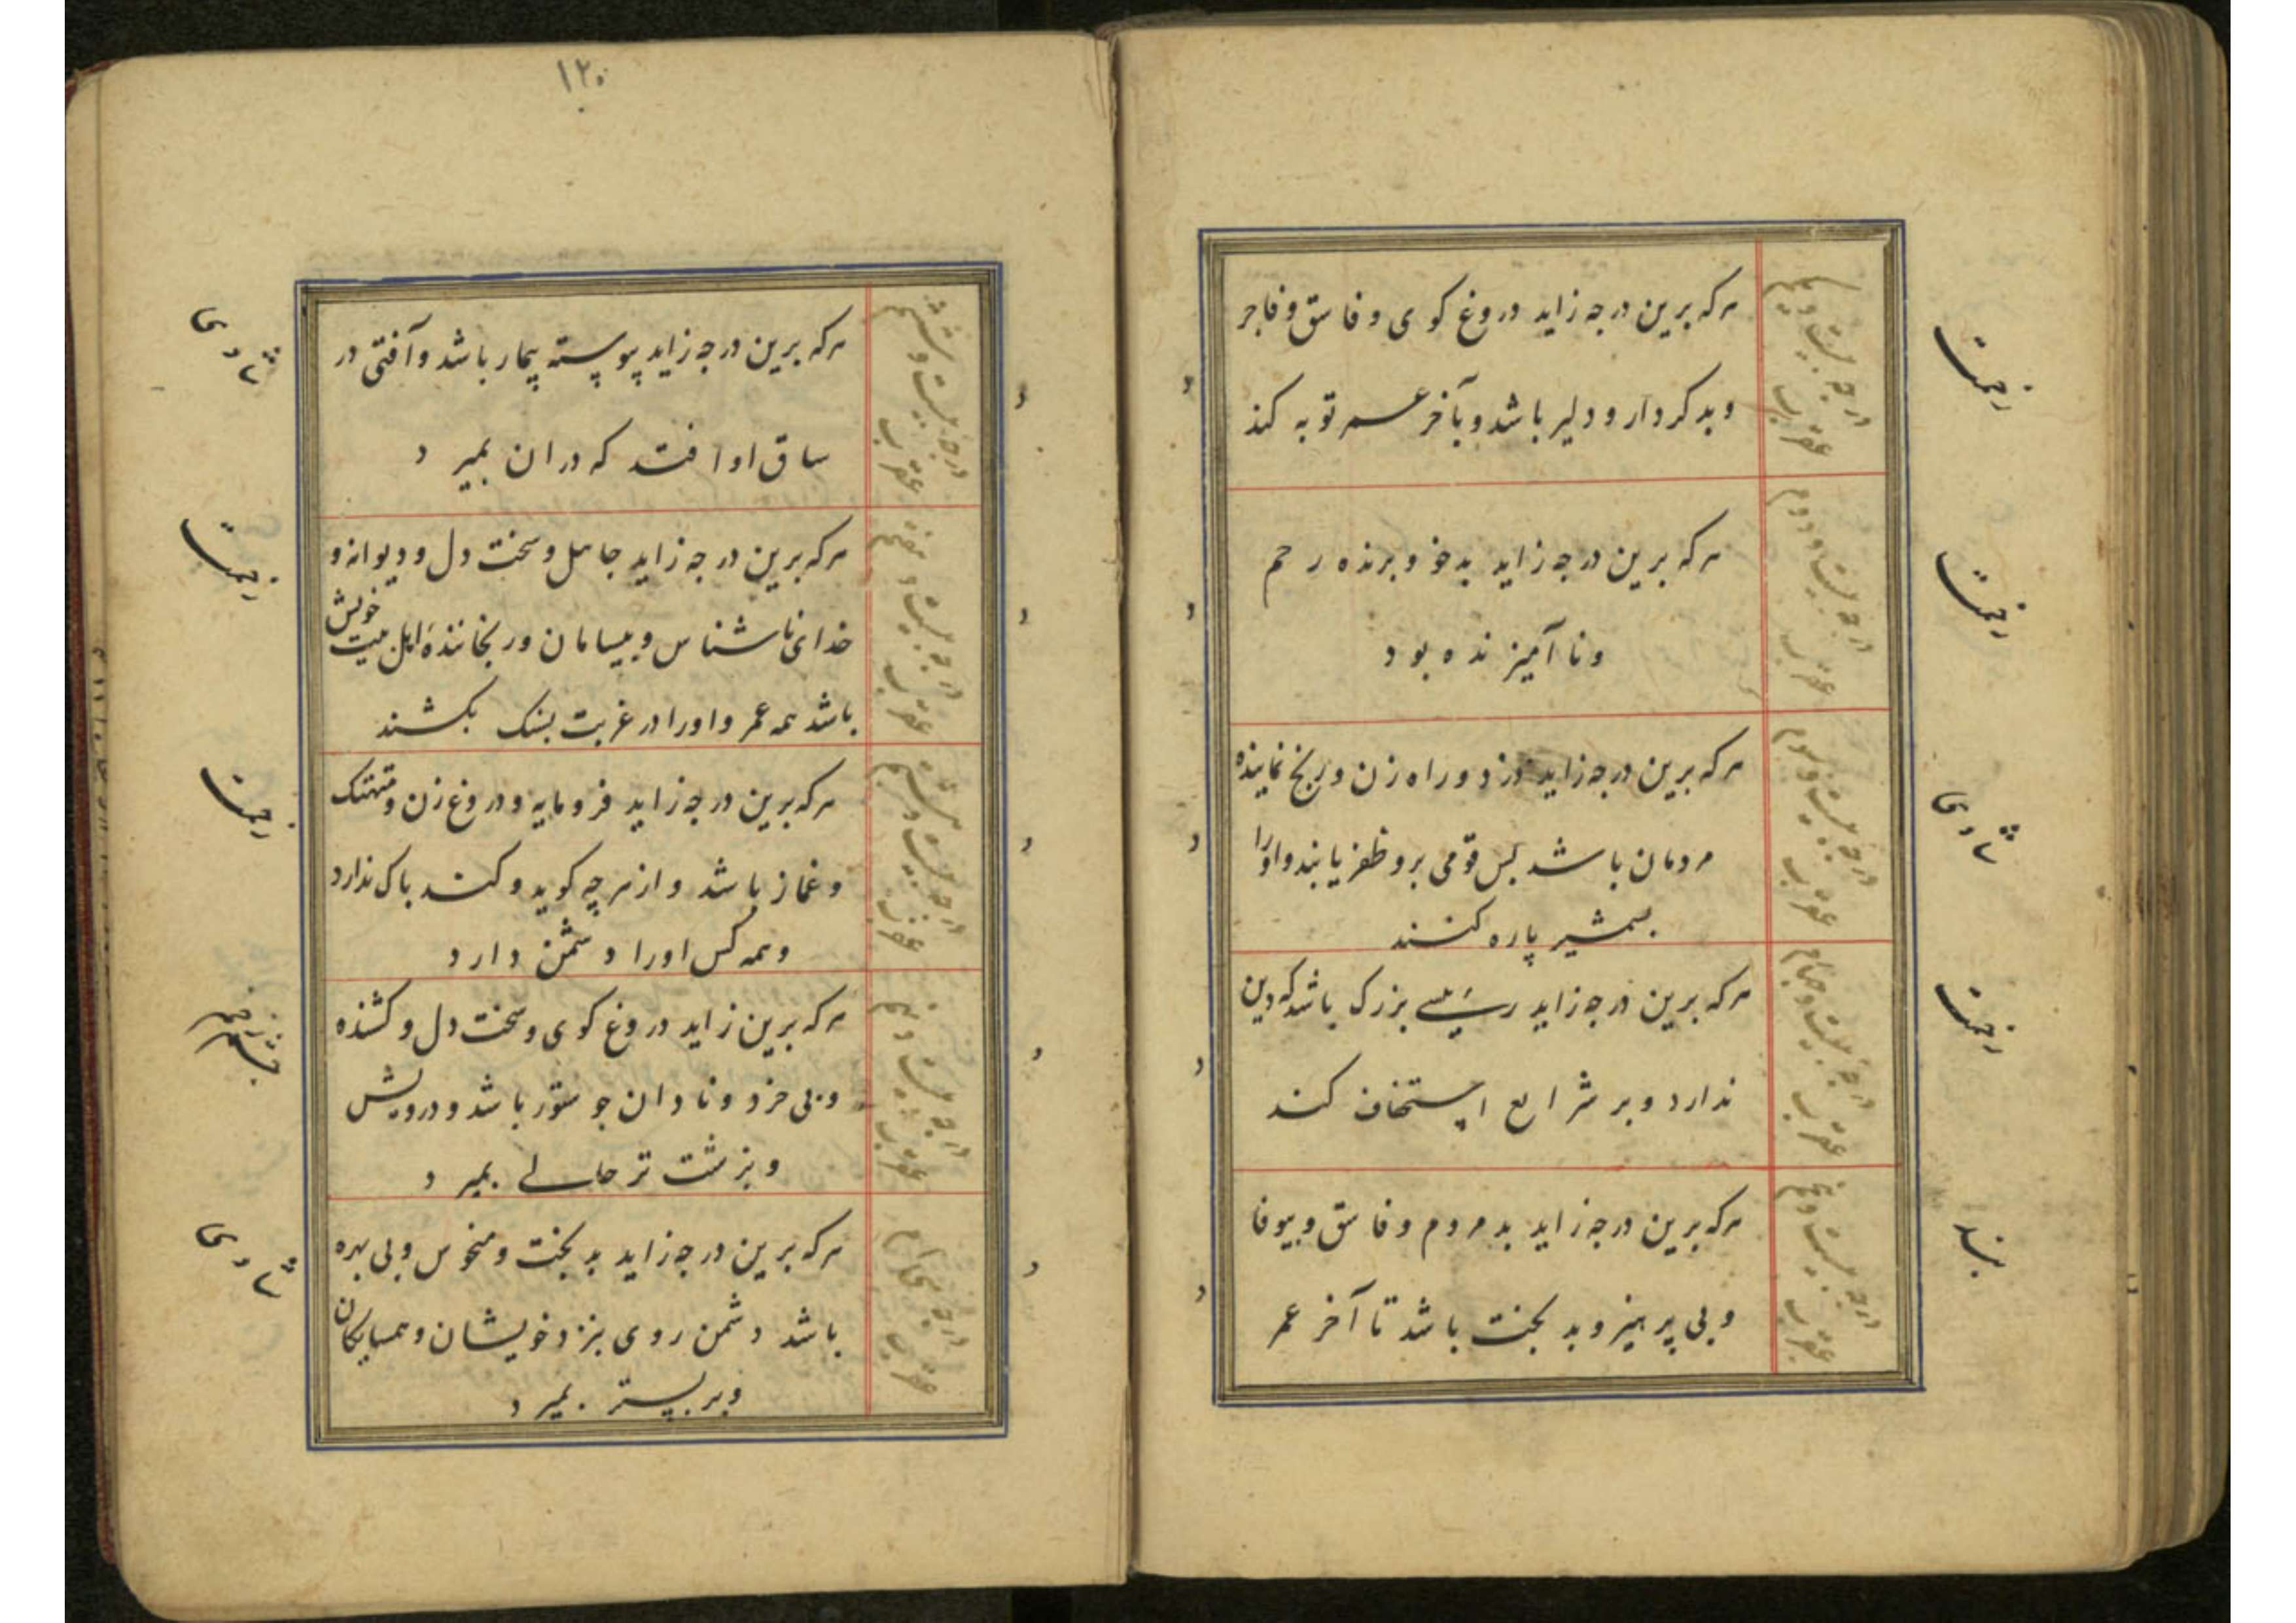 درجه بیست و یکم
عقرب
هرکه برین درجه زاید دروغ کوی و فاسق و فاجر
و بدکردار و دلیر باشد و بآخر عمر توبه کند
زحمت
درجه بیست و دوم
عقرب
هرکه برین درجه زاید بدخو و برنده رحم
و ناآمیزنده بود
زحمت
درجه بیست و سوم
عقرب
هرکه برین درجه زاید دزد و راه زن و رنج نماینده
مردمان باشد پس قومی برو ظفر یابند و او را
بشمشیر پاره کنند
درجه بیست و چهارم
عقرب
هرکه برین درجه زاید رئیسی بزرک باشد که دین
ندارد و بر شرایع استخفاف کند
زحمت
درجه بیست و پنجم
عقرب
هرکه برین درجه زاید بد مردم و فاسق و بیوفا
و بی پرهیز و بدبخت باشد تا آخر عمر
۱۲۰
درجه بیست و ششم
عقرب
هرکه برین درجه زاید پیوسته بیمار باشد و آفتی در
ساق او افتد که دران بمیرد
درجه بیست و هفتم
عقرب
هرکه برین درجه زاید جاهل و سخت دل و دیوانه و
خدای ناشناس و بیسامان و رنجاننده اهل بیت خویش
باشد همه عمر و او را در غربت بسنک بکشند
زحمت
درجه بیست و هشتم
عقرب
هرکه برین درجه زاید فرومایه و دروغ زن و متهتک
و غماز باشد و از هرچه کوید و کند باک ندارد
و همه کس او را دشمن دارد
زحمت
درجه بیست و نهم
عقرب
هرکه برین زاید دروغ کوی و سخت دل و کشنده
و بی خرد و نادان جو ستور باشد و درویش
و بزشت تر حالی بمیرد
درجه سی ام
عقرب
هرکه برین درجه زاید بدبخت و منحوس و بی بهره
باشد دشمن روی بنزد خویشان و همسایکان
و بر بستر بمیرد